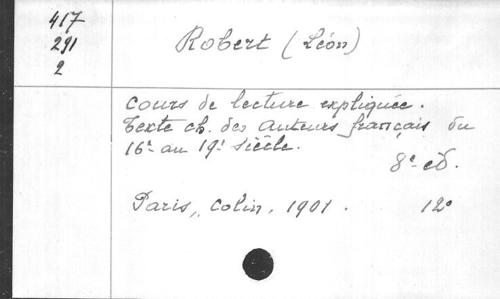 417
291
2
Robert (Léon)
Cours de lecture expliquée.
Texte ch. des Auteurs français du
16e au 19e siècle.
8e éd.
Paris, Colin, 1901. 12°